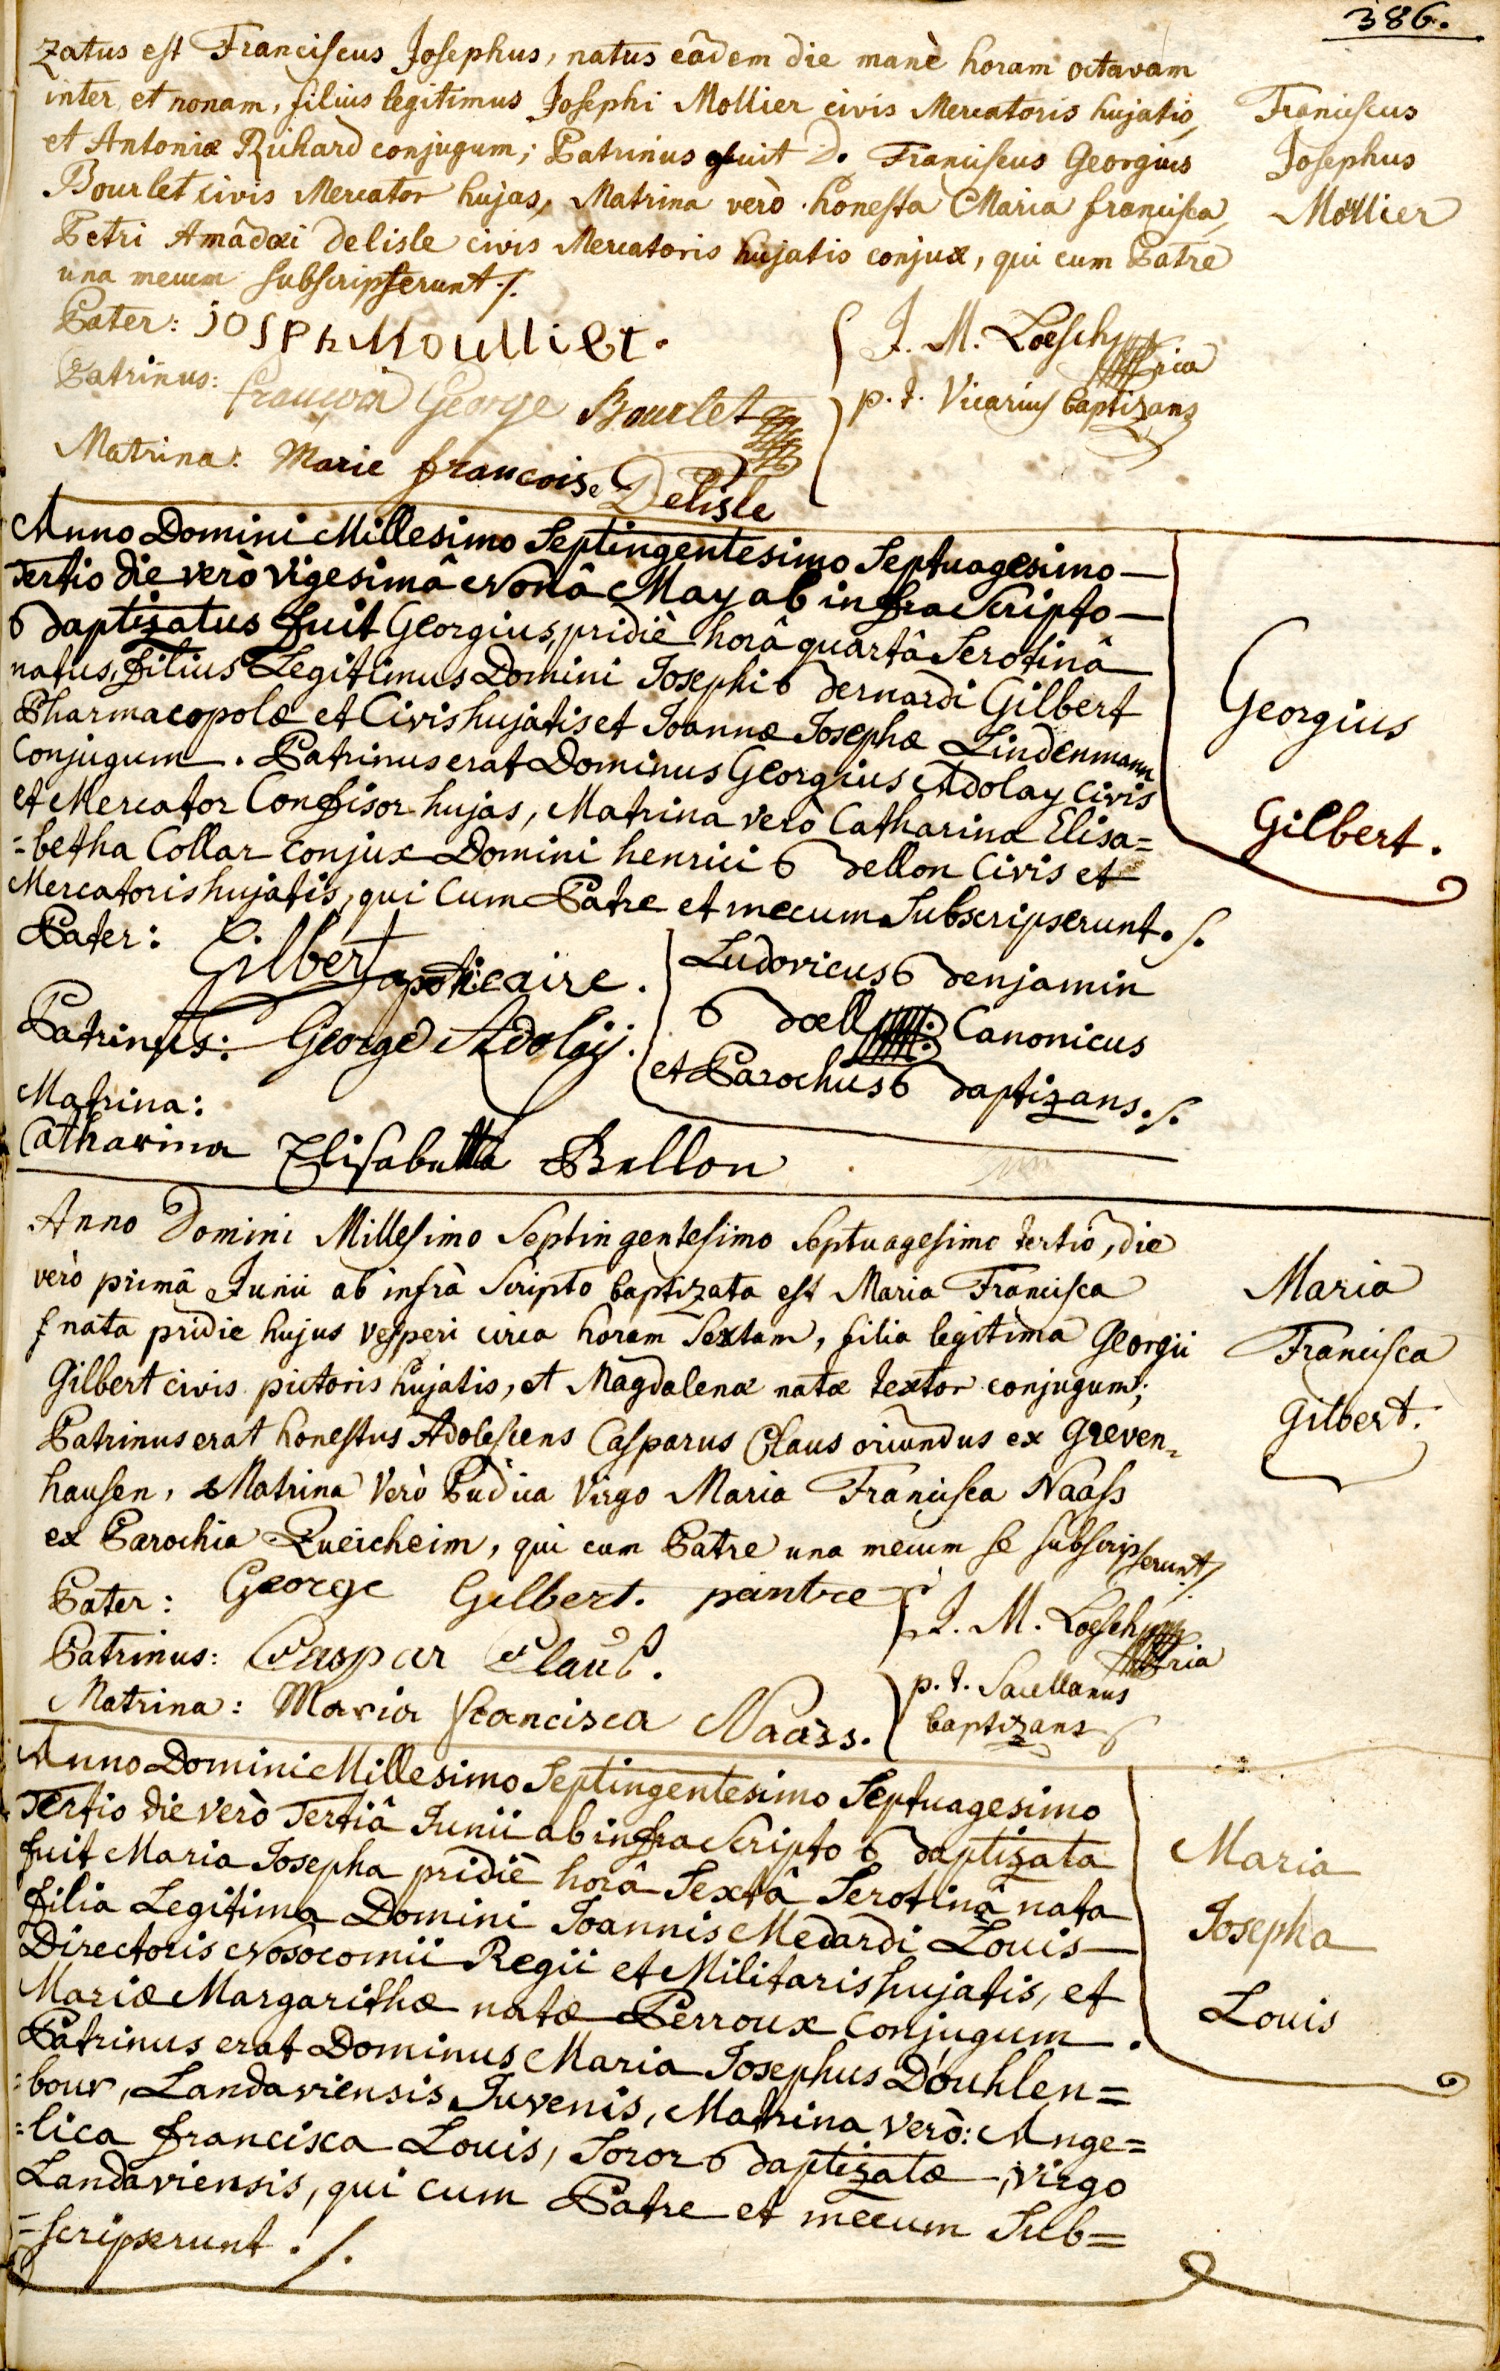 386.
zatus est Franciscus Josephus, natus eâdem die manè horam octavam
inter et nonam, filius legitimus Josephi Mollier civis Mercatoris hujatis,
et Antoniæ Richard conjugum; Patrinus fuit D. Franciscus Georgius
Bourlet civis Mercator hujas, Matrina verò honesta Maria francisca,
Petri Amâdæi Delisle civis Mercatoris hujatis conjux, qui cum Patre
una mecum subscripserunt ./.
Franciscus
Josephus
Mollier
Pater: josph Moulliet.
Patrinus: francois George Bourlet
Matrina: Marie francoise Delisle
J. M. Loesch
p. t. Vicarius baptizans
Anno Domini Millesimo Septingentesimo Septuagesimo
Tertio die verò vigesimâ Nonâ May ab infra Scripto
Baptizatus fuit Georgius, pridiè horâ quartâ Serotinâ
natus, filius Legitimus Domini Josephi Bernardi Gilbert
Pharmacopolæ et Civis hujatis et Joannæ Josephæ Lindenmann
Conjugum. Patrinus erat Dominus Georgius Adolay Civis
et Mercator Confisor hujas, Matrina verò Catharina Elisa=
=betha Collar conjux Domini henrici Bellon Civis et
Mercatoris hujatis, qui Cum Patre et mecum Subscripserunt ./.
Georgius
Gilbert.
Pater: Gilbert apoticaire.
Patrinus: George Adolay.
Matrina:
Catharina Elisabetta Bellon
Ludovicus Benjamin
Boell Canonicus
et Parochus Baptizans ./.
Anno Domini Millesimo Septingentesimo Septuagesimo tertio, die
verò primâ Junii ab infrà Scripto baptizata est Maria Francisca
nata pridie hujus vesperi circa horam Sextam, filia legitima Georgii
Gilbert civis pictoris hujatis, et Magdalenæ natæ textor conjugum;
Patrinus erat honestus Adolescens Casparus Claus oriundus ex Greven=
hausen, Matrina verò Pudica Virgo Maria Francisca Naass
ex Parochia Queicheim, qui cum Patre una mecum se subscripserunt ./.
Maria
Francisca
Gilbert.
Pater: George Gilbert. peintre
Patrinus: Caspar Claus.
Matrina: Maria Francisca Naass.
J. M. Loesch
p. t. Sacellanus
baptizans
Anno Domini Millesimo Septingentesimo Septuagesimo
Tertio die verò Tertiâ Junii ab infra Scripto Baptizata
fuit Maria Josepha pridiè horâ Sextâ Serotinâ nata
filia Legitima Domini Joannis Medardi Louis
Directoris Nosocomii Regii et Militaris hujatis, et
Mariæ Margarithæ natæ Perroux Conjugum.
Patrinus erat Dominus Maria Josephus Douhlen=
=bour, Landaviensis Juvenis, Matrina verò: Ange=
=lica francisca Louis, Soror Baptizatæ, virgo
Landaviensis, qui cum Patre et mecum Sub=
=scripserunt ./.
Maria
Josepha
Louis